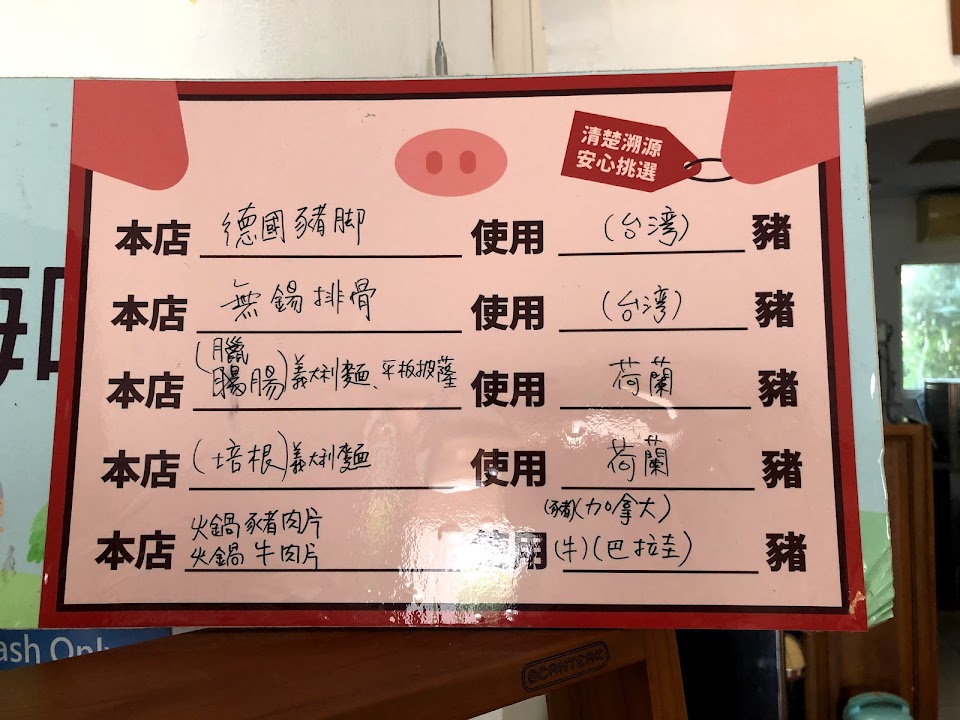 清楚溯源
安心挑選
本店 德國豬脚 使用 (台湾) 豬
本店 無錫排骨 使用 (台湾) 豬
臘
本店 (腸腸)義大利麵、平板披薩 使用 荷蘭 豬
本店 (培根)義大利麵 使用 荷蘭 豬
火鍋豬肉片 (豬)(加拿大)
本店 火鍋牛肉片 使用 (牛)(巴拉圭) 豬
ash Only
SCANTEAK